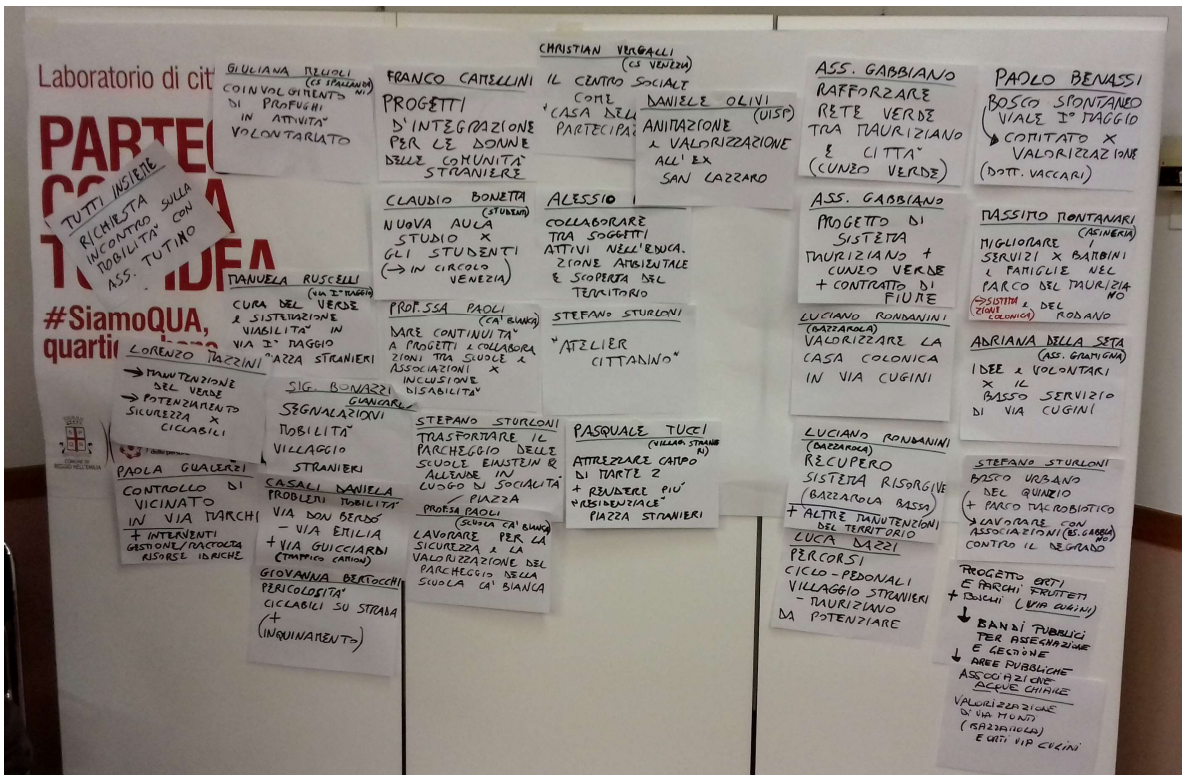 Laboratorio di cit
PARTE
TU IDEA
#SiamoQUA,
COMUNE DI
REGGIO NELL'EMILIA
TUTTI INSIEME
RICHIESTA
INCONTRO SULLA
MOBILITA' CON
ASS. TUTINO
GIULIANA MELIOLI
(CS SPALLANZANI)
COINVOLGIMENTO
DI PROFUGHI
IN ATTIVITA'
VOLONTARIATO
MANUELA RUSCELLI
(VIA I° MAGGIO)
CURA DEL VERDE
e SISTEMAZIONE
VIABILITA' IN
VIA I° MAGGIO
PIAZZA STRANIERI
LORENZO MAZZINI
→ MANUTENZIONE
DEL VERDE
→ POTENZIAMENTO
SICUREZZA X
CICLABILI
SIG. BONAZZI
GIANCARLO
SEGNALAZIONI
MOBILITA'
VILLAGGIO
STRANIERI
PAOLA GUALERZI
CONTROLLO DI
VICINATO
IN VIA MARCHI
+ INTERVENTI
GESTIONE/RACCOLTA
RISORSE IDRICHE
CASALI DANIELA
PROBLEMI MOBILITA'
VIA DON BORDO'
- VIA EMILIA
+ VIA GUICCIARDI
(TRAFFICO CAMION)
GIOVANNA BERTOCCHI
PERICOLOSITA'
CICLABILI SU STRADA
(+
INQUINAMENTO)
FRANCO CAMELLINI
PROGETTI
D'INTEGRAZIONE
PER LE DONNE
DELLE COMUNITA'
STRANIERE
CLAUDIO BONETTA
(STUDENTI)
NUOVA AULA
STUDIO X
GLI STUDENTI
(→ IN CIRCOLO
VENEZIA)
PROF.SSA PAOLI
(CA' BIANCA)
DARE CONTINUITA'
A PROGETTI e COLLABORA
ZIONI TRA SCUOLE e
ASSOCIAZIONI X
INCLUSIONE
DISABILITA'
STEFANO STURLONI
TRASFORMARE IL
PARCHEGGIO DELLE
SCUOLE EINSTEIN &
ALLENDE IN
LUOGO DI SOCIALITA'
/ PIAZZA
PROF.SSA PAOLI
(SCUOLA CA' BIANCA)
LAVORARE PER LA
SICUREZZA e LA
VALORIZZAZIONE DEL
PARCHEGGIO DELLA
SCUOLA CA' BIANCA
CHRISTIAN VERGALLI
(CS VENEZIA)
IL CENTRO SOCIALE
COME
"CASA DELL
PARTECIPAZ
DANIELE OLIVI
(UISP)
ANIMAZIONE
e VALORIZZAZIONE
ALL'EX
SAN LAZZARO
ALESSIO
COLLABORARE
TRA SOGGETTI
ATTIVI NELL'EDUCA.
ZIONE AMBIENTALE
E SCOPERTA DEL
TERRITORIO
STEFANO STURLONI
"ATELIER
CITTADINO"
PASQUALE TUCCI
(VILLAG. STRANIE
RI)
ATTREZZARE CAMPO
DI MARTE 2
+ RENDERE PIU'
"RESIDENZIALE"
PIAZZA STRANIERI
ASS. GABBIANO
RAFFORZARE
RETE VERDE
TRA MAURIZIANO
E CITTA'
(CUNEO VERDE)
ASS. GABBIANO
PROGETTO DI
SISTEMA
MAURIZIANO +
CUNEO VERDE
+ CONTRATTO DI
FIUME
LUCIANO RONDANINI
(BAZZAROLA)
VALORIZZARE LA
CASA COLONICA
IN VIA CUGINI
LUCIANO RONDANINI
(BAZZAROLA)
RECUPERO
SISTEMA RISORGIVE
(BAZZAROLA BASSA)
+ ALTRE MANUTENZIONI
DEL TERRITORIO
LUCA DAZZI
PERCORSI
CICLO-PEDONALI
VILLAGGIO STRANIERI
- MAURIZIANO
DA POTENZIARE
PAOLO BENASSI
BOSCO SPONTANEO
VIALE I° MAGGIO
→ COMITATO X
VALORIZZAZIONE
(DOTT. VACCARI)
MASSIMO MONTANARI
(ASINERIA)
MIGLIORARE I
SERVIZI X BAMBINI
e FAMIGLIE NEL
PARCO DEL MAURIZIA
NO
(→ SISTEMA
ZIONE
COLONICA)
e DEL
RODANO
ADRIANA DELLA SETA
(ASS. GRAMIGNA)
IDEE e VOLONTARI
X IL
BASSO SERVIZIO
DI VIA CUGINI
STEFANO STURLONI
BOSCO URBANO
DEL QUINZIO
+ PARCO MACROBIOTICO
→ LAVORARE CON
ASSOCIAZIONI (ES. GABBIA
NO)
CONTRO IL DEGRADO
PROGETTO ORTI
E PARCHI FRUTTETI
+ BOSCHI (VIA CUGINI)
↓ BANDI PUBBLICI
PER ASSEGNAZIONE
E GESTIONE
↓ AREE PUBBLICHE
ASSOCIAZIONE
ACQUE CHIARE
VALORIZZAZIONE
DI VIA MONTI
(BAZZAROLA)
E ORTI VIA CUGINI